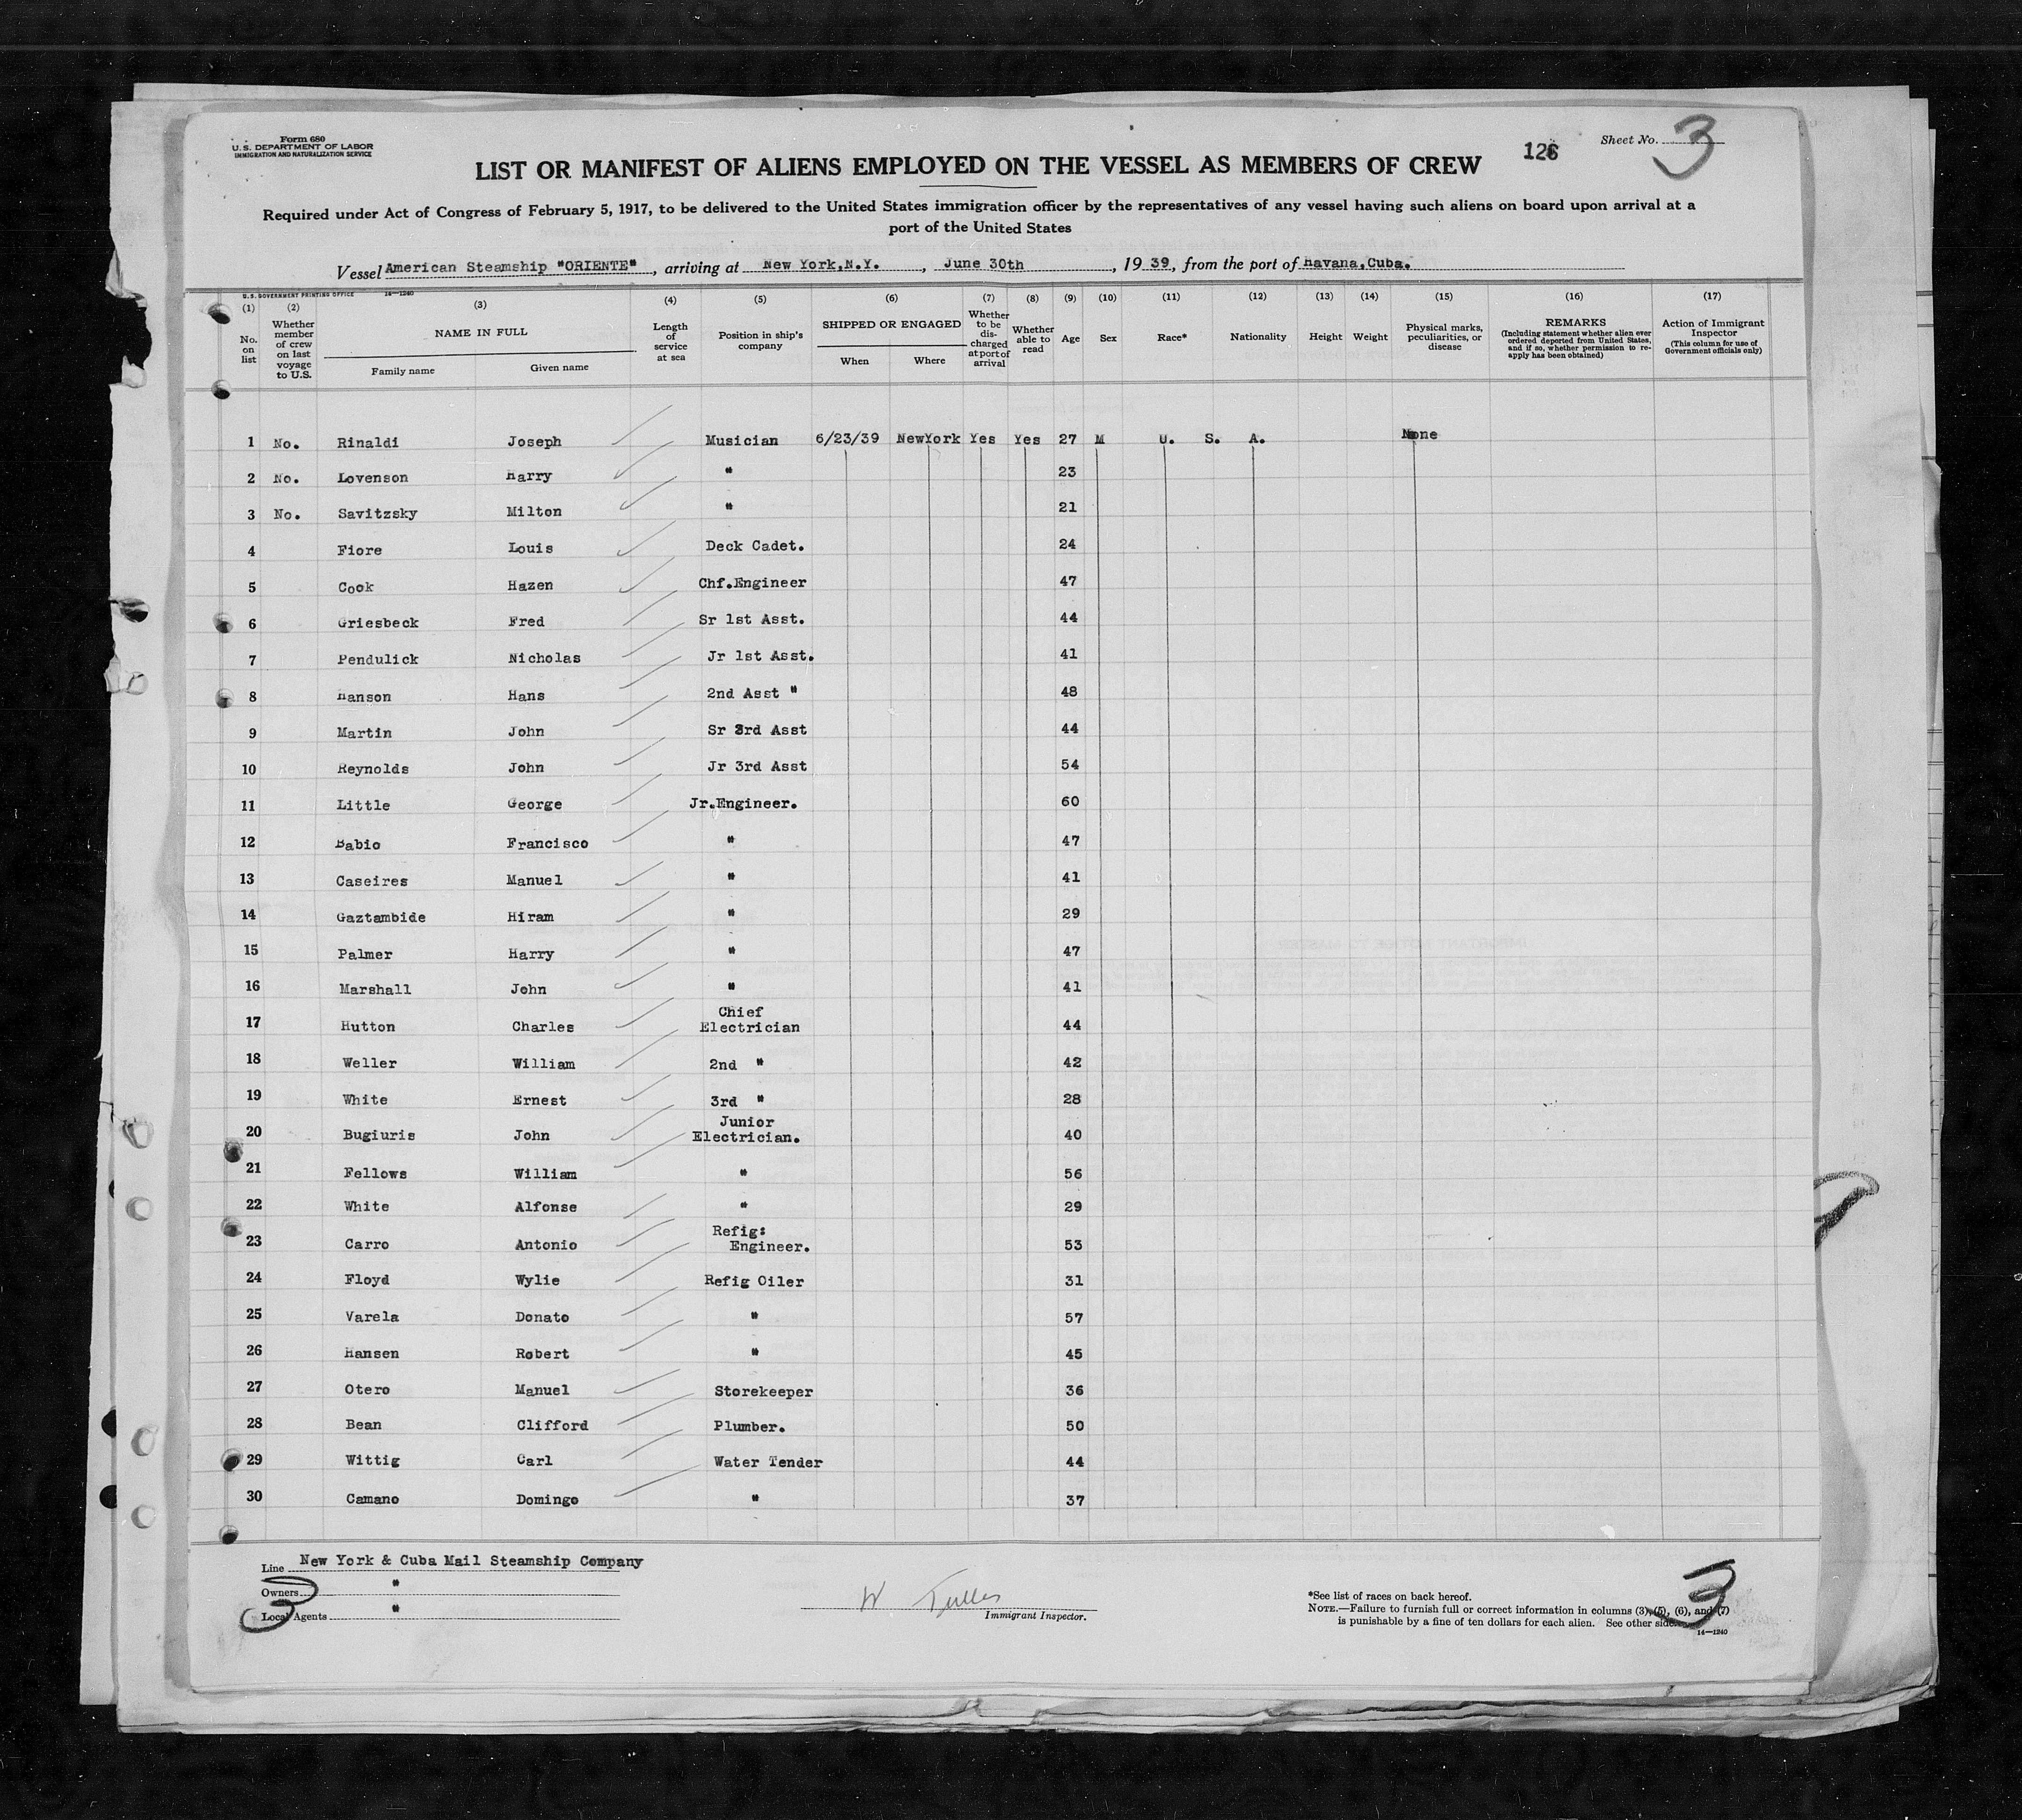 Form 680
U. S. DEPARTMENT OF LABOR
IMMIGRATION AND NATURALIZATION SERVICE
Sheet No. 3
126
LIST OR MANIFEST OF ALIENS EMPLOYED ON THE VESSEL AS MEMBERS OF CREW
Required under Act of Congress of February 5, 1917, to be delivered to the United States immigration officer by the representatives of any vessel having such aliens on board upon arrival at a
port of the United States
Vessel American Steamship "ORIENTE", arriving at New York,N.Y., June 30th, 19 39, from the port of Havana,Cuba.
U. S. GOVERNMENT PRINTING OFFICE 14—1240
(1) (2) (3) (4) (5) (6) (7) (8) (9) (10) (11) (12) (13) (14) (15) (16) (17)
No. on list
Whether member of crew on last voyage to U.S.
NAME IN FULL
Family name Given name
Length of service at sea
Position in ship's company
SHIPPED OR ENGAGED
When Where
Whether to be discharged at port of arrival
Whether able to read
Age
Sex
Race*
Nationality
Height
Weight
Physical marks, peculiarities, or disease
REMARKS
(Including statement whether alien ever ordered deported from United States, and if so, whether permission to reapply has been obtained)
Action of Immigrant Inspector
(This column for use of Government officials only)
1 No. Rinaldi Joseph Musician 6/23/39 NewYork Yes Yes 27 M U. S. A. None
2 No. Lovenson Harry " 23
3 No. Savitzsky Milton " 21
4 Fiore Louis Deck Cadet. 24
5 Cook Hazen Chf.Engineer 47
6 Griesbeck Fred Sr 1st Asst. 44
7 Pendulick Nicholas Jr 1st Asst. 41
8 Hanson Hans 2nd Asst " 48
9 Martin John Sr 3rd Asst 44
10 Reynolds John Jr 3rd Asst 54
11 Little George Jr.Engineer. 60
12 Babio Francisco " 47
13 Caseires Manuel " 41
14 Gaztambide Hiram " 29
15 Palmer Harry " 47
16 Marshall John " 41
17 Hutton Charles Chief Electrician 44
18 Weller William 2nd " 42
19 White Ernest 3rd " 28
20 Bugiuris John Junior Electrician. 40
21 Fellows William " 56
22 White Alfonse " 29
23 Carro Antonio Refig: Engineer. 53
24 Floyd Wylie Refig Oiler 31
25 Varela Donato " 57
26 Hansen Robert " 45
27 Otero Manuel Storekeeper 36
28 Bean Clifford Plumber. 50
29 Wittig Carl Water Tender 44
30 Camano Domingo " 37
Line New York & Cuba Mail Steamship Company
Owners "
Local Agents "
3
W
Immigrant Inspector.
*See list of races on back hereof.
NOTE.—Failure to furnish full or correct information in columns (3), (5), (6), and (7)
is punishable by a fine of ten dollars for each alien. See other side.
14—1240
3